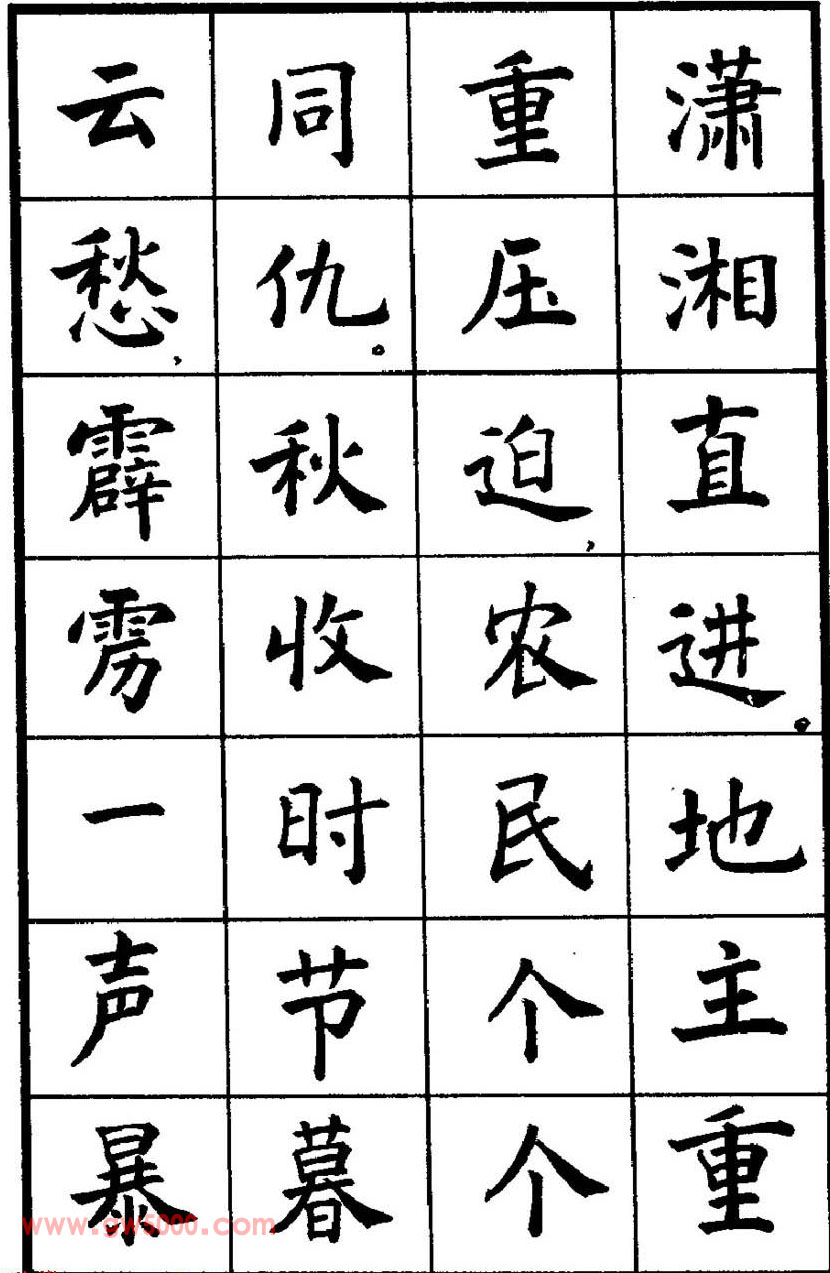 潇湘直进。地主重
重压迫，农民个个
同仇。秋收时节暮
云愁，霹雳一声暴
www.gw5000.com